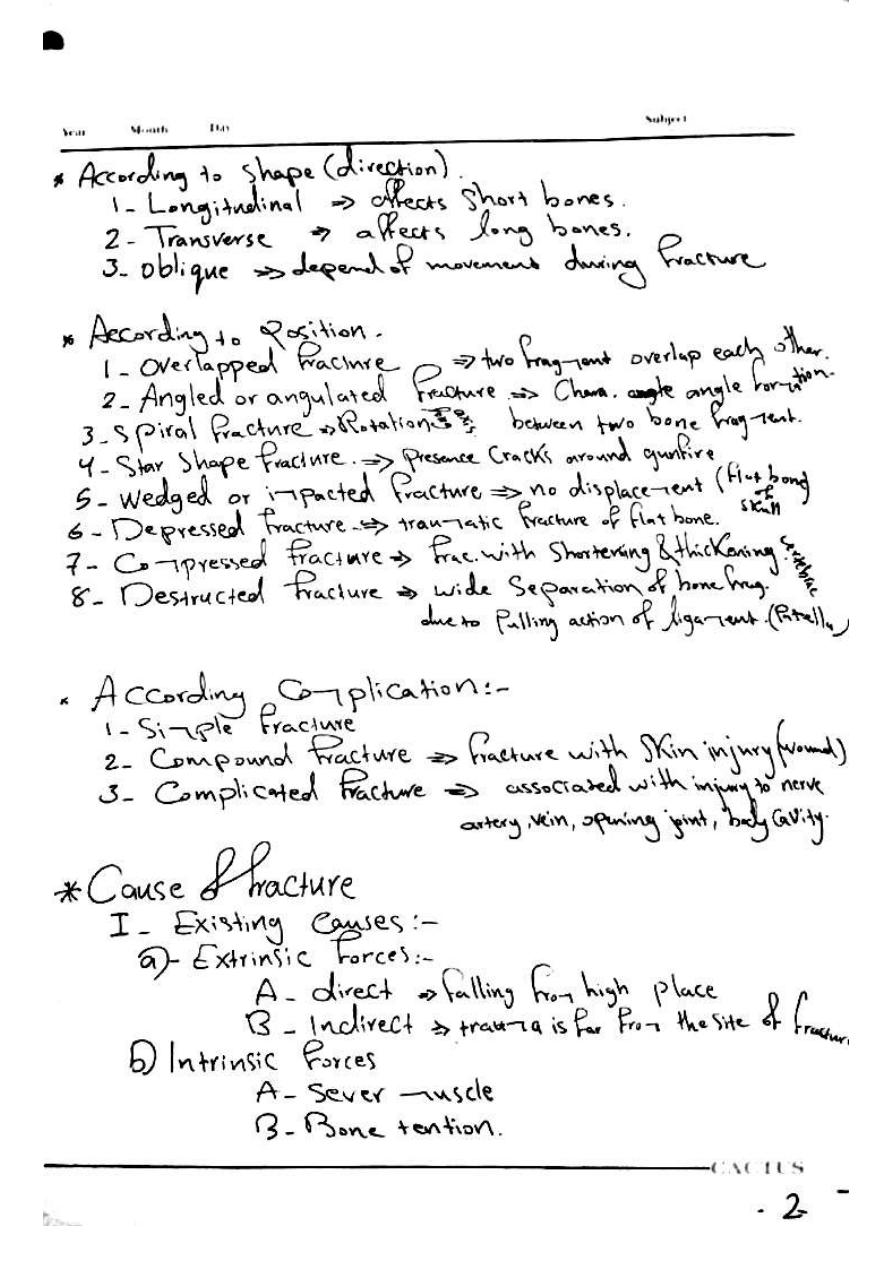 Year Month Day Subject
* According to shape (direction).
1- Longitudinal => affects short bones.
2- Transverse => affects long bones.
3- oblique => depend of movement during fracture
* According to Position.
1- Overlapped fracture => two fragment overlap each other.
2- Angled or angulated fracture => Chara. angle formation.
3- Spiral fracture => Rotation between two bone fragment.
4- Star Shape fracture. => presence Cracks around gunfire
5- Wedged or impacted fracture => no displacement (flat bone of skull
6- Depressed fracture => traumatic fracture of flat bone.
7- Compressed fracture => frac. with Shortening & thickening vertebrae
8- Destructed fracture => wide Separation of bone frag.
due to Pulling action of ligament. (Patella)
* According Complication:-
1- Simple fracture
2- Compound fracture => fracture with Skin injury (wound)
3- Complicated fracture => associated with injury to nerve
artery, vein, opening joint, body Cavity.
* Cause of fracture
I- Existing Causes:-
a)- Extrinsic forces:-
A- direct => falling from high place
B- Indirect => trauma is far from the site of fracture
b) Intrinsic forces
A- Sever muscle
B- Bone tention.
CACTUS
- 2 -